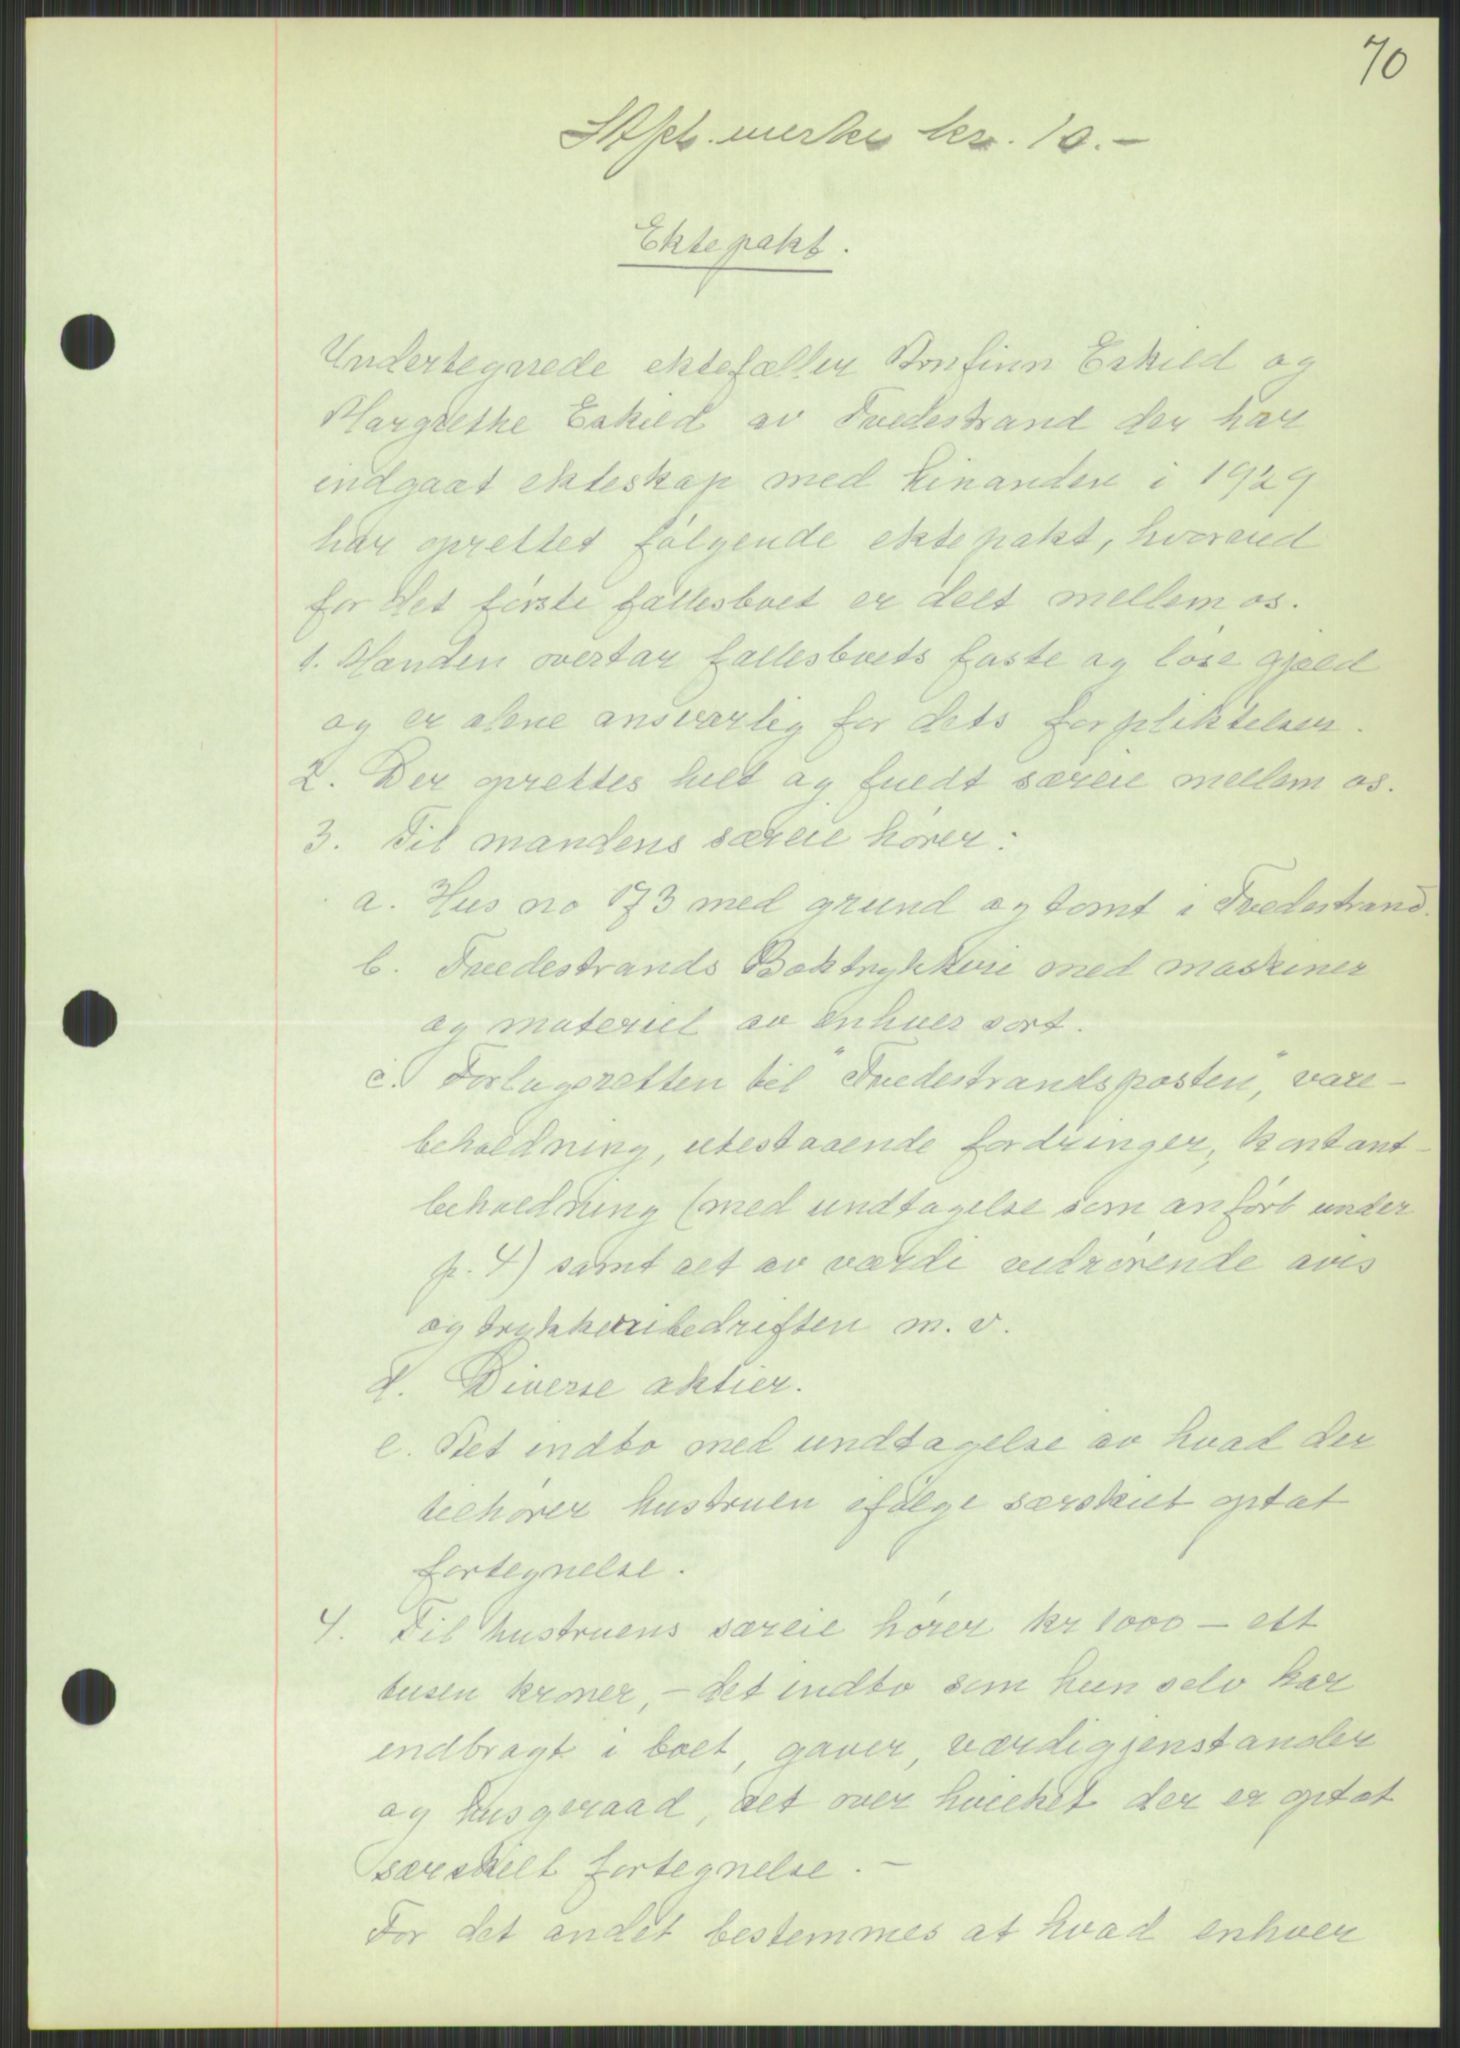 70
Stpl. merke kr. 10.-
Ektepakt.
Undertegnede ektefæller Arnfinn Eskild og
Margrethe Eskild av Tvedestrand der har
indgaat ekteskap med hinanden i 1929
har oprettet følgende ektepakt, hvorved
for det første fællesboet er delt mellem os.
1. Manden overtar fællesboets faste og løse gjæld
og er alene ansvarlig for dets forpliktelser.
2. Der oprettes helt og fuldt særeie mellem os.
3. Til mandens særeie hører:
a. Hus no 173 med grund og tomt i Tvedestrand.
b. Tvedestrands Boktrykkeri med maskiner
og materiel av enhver sort.
c. Forlagsretten til "Tvedestrandsposten", vare-
beholdning, utestaaende fordringer, kontant-
beholdning (med undtagelse som anført under
p. 4) samt alt av værdi vedrørende avis
og trykkeribedriften m. v.
d. Diverse aktier.
e. Alt indbo med undtagelse av hvad der
tilhører hustruen ifølge særskilt optat
fortegnelse.
4. Til hustruens særeie hører kr 1000 - ett
tusen kroner, - det indbo som hun selv har
indbragt i boet, gaver, værdigjenstander
og husgeraad, alt over hvilket der er optat
særskilt fortegnelse. -
For det andet bestemmes at hvad enhver